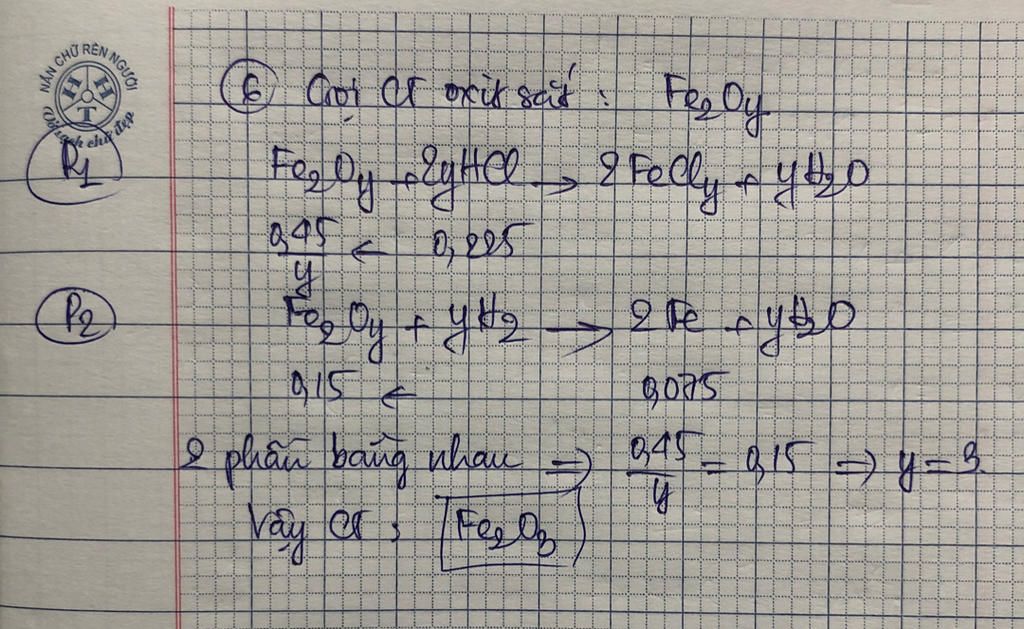 NẮN CHỮ RÈN NGƯỜI
H H T
Vở sạch chữ đẹp
6 Gọi CT oxit sắt : Fe2Oy
P1
Fe2Oy + 2yHCl → 2FeCly + yH2O
0,45/y ← 0,225
P2
Fe2Oy + yH2 → 2Fe + yH2O
0,15 ← 0,075
2 phần bằng nhau ⇒ 0,45/y = 0,15 ⇒ y = 3.
Vậy CT : Fe2O3